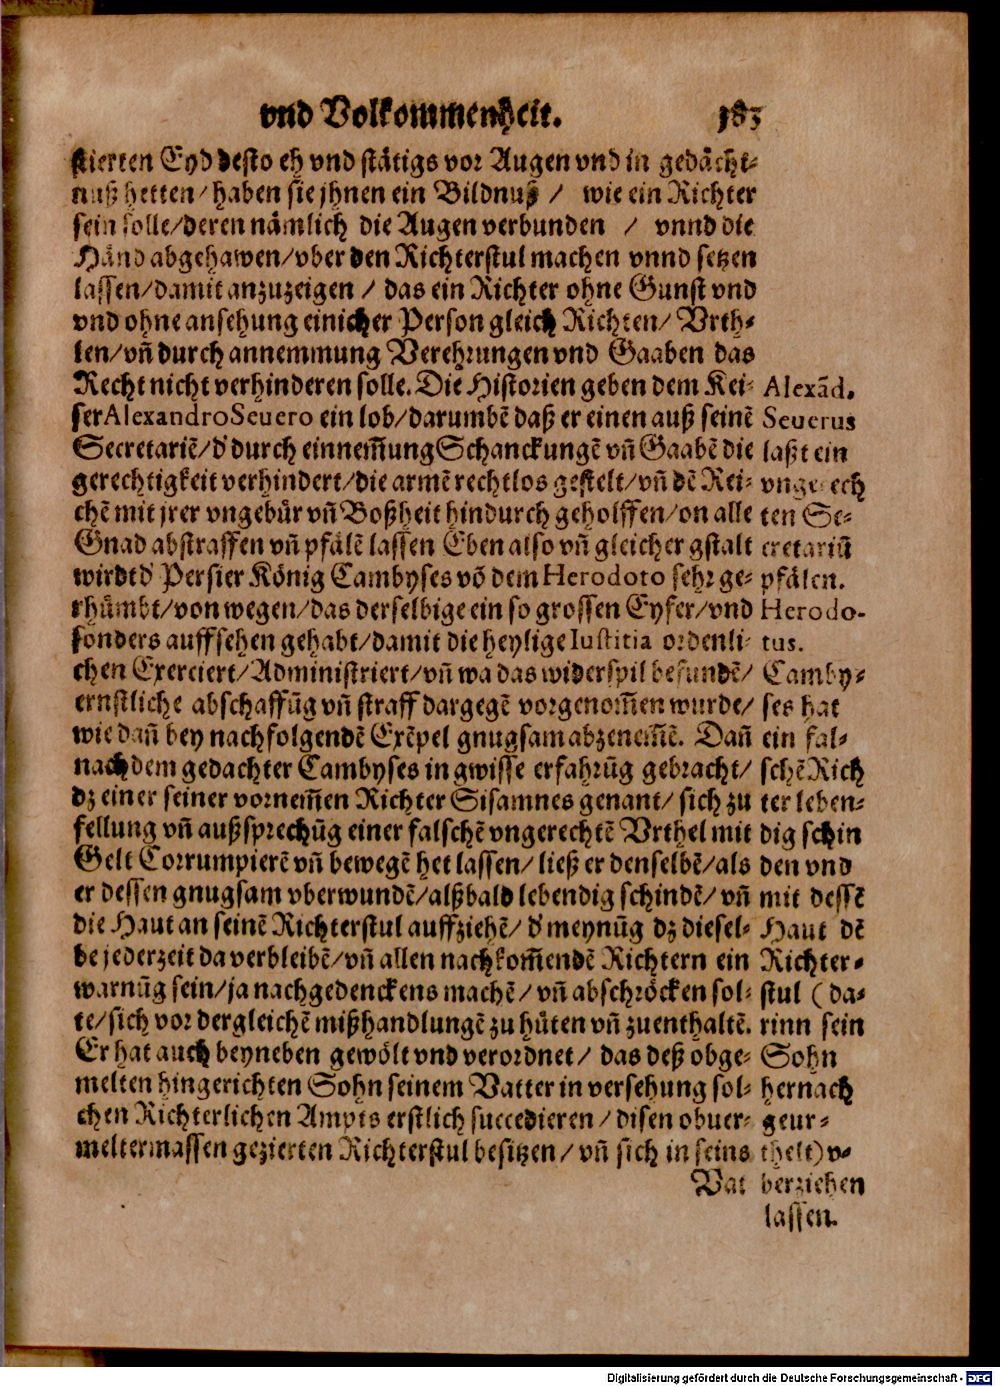 vnd Volkommenheit. 183
stierten Eyd desto eh vnd stätigs vor Augen vnd in gedächt-
nuß hetten/haben sie jhnen ein Bildnuß / wie ein Richter
sein solle/deren nämlich die Augen verbunden / vnnd die
Händ abgehawen/vber den Richterstul machen vnnd setzen
lassen/damit anzuzeigen / das ein Richter ohne Gunst vnd
vnd ohne ansehung einicher Person gleich Richten/ Vrth-
len/vñ durch annemmung Verehrungen vnd Gaaben das
Recht nicht verhinderen solle. Die Historien geben dem Kei-
ser Alexandro Seuero ein lob/darumbẽ daß er einen auß seinẽ
Secretariẽ/d' durch einnem̃ung Schanckungẽ vñ Gaabẽ die
gerechtigkeit verhindert/die armẽ rechtlos gestelt/vñ dẽ Rei-
chẽ mit jrer vngebür vñ Boßheit hindurch geholffen/on alle
Gnad abstraffen vñ pfälẽ lassen Eben also vñ gleicher gstalt
wirdt d' Persier König Cambyses võ dem Herodoto sehr ge-
rhümbt/von wegen/das derselbige ein so grossen Eyfer/vnd
sonders auffsehen gehabt/damit die heylige Iustitia ordenli-
chen Exerciert/Administriert/vñ wa das widerspil befundẽ/
ernstliche abschaffũg vñ straff dargegẽ vorgenom̃en wurde/
wie dañ bey nachfolgendẽ Exẽpel gnugsam abzenem̃ẽ. Dañ
nach dem gedachter Cambyses in gwisse erfahrũg gebracht/
dz einer seiner vornem̃en Richter Sisamnes genant/sich zu
fellung vñ außsprechũg einer falschẽ vngerechtẽ Vrthel mit
Gelt Corrumpierẽ vñ bewegẽ het lassen/ließ er denselbẽ/als
er dessen gnugsam vberwundẽ/alßbald lebendig schindẽ/vñ
die Haut an seinẽ Richterstul auffziehẽ/d' meynũg dz diesel-
be jederzeit da verbleibẽ/vñ allen nachkom̃endẽ Richtern ein
warnũg sein/ja nachgedenckens machẽ/vñ abschröcken sol-
te/sich vor dergleichẽ mißhandlungẽ zu hüten vñ zuenthaltẽ.
Er hat auch beyneben gewölt vnd verordnet/ das deß obge-
melten hingerichten Sohn seinem Vatter in versehung sol-
chen Richterlichen Ampts erstlich succedieren/disen obuer-
meltermassen gezierten Richterstul besitzen/vñ sich in seins
Vat
Alexãd.
Seuerus
laßt ein
vngerech
ten Se-
cretariũ
pfälen.
Herodo-
tus.
Camby-
ses hat
ein fal-
schẽ Rich
ter leben-
dig schin
den vnd
mit dessẽ
Haut dẽ
Richter-
stul (da-
rinn sein
Sohn
hernach
geur-
thelt) v-
berziehen
lassen.
Digitalisierung gefördert durch die Deutsche Forschungsgemeinschaft - DFG